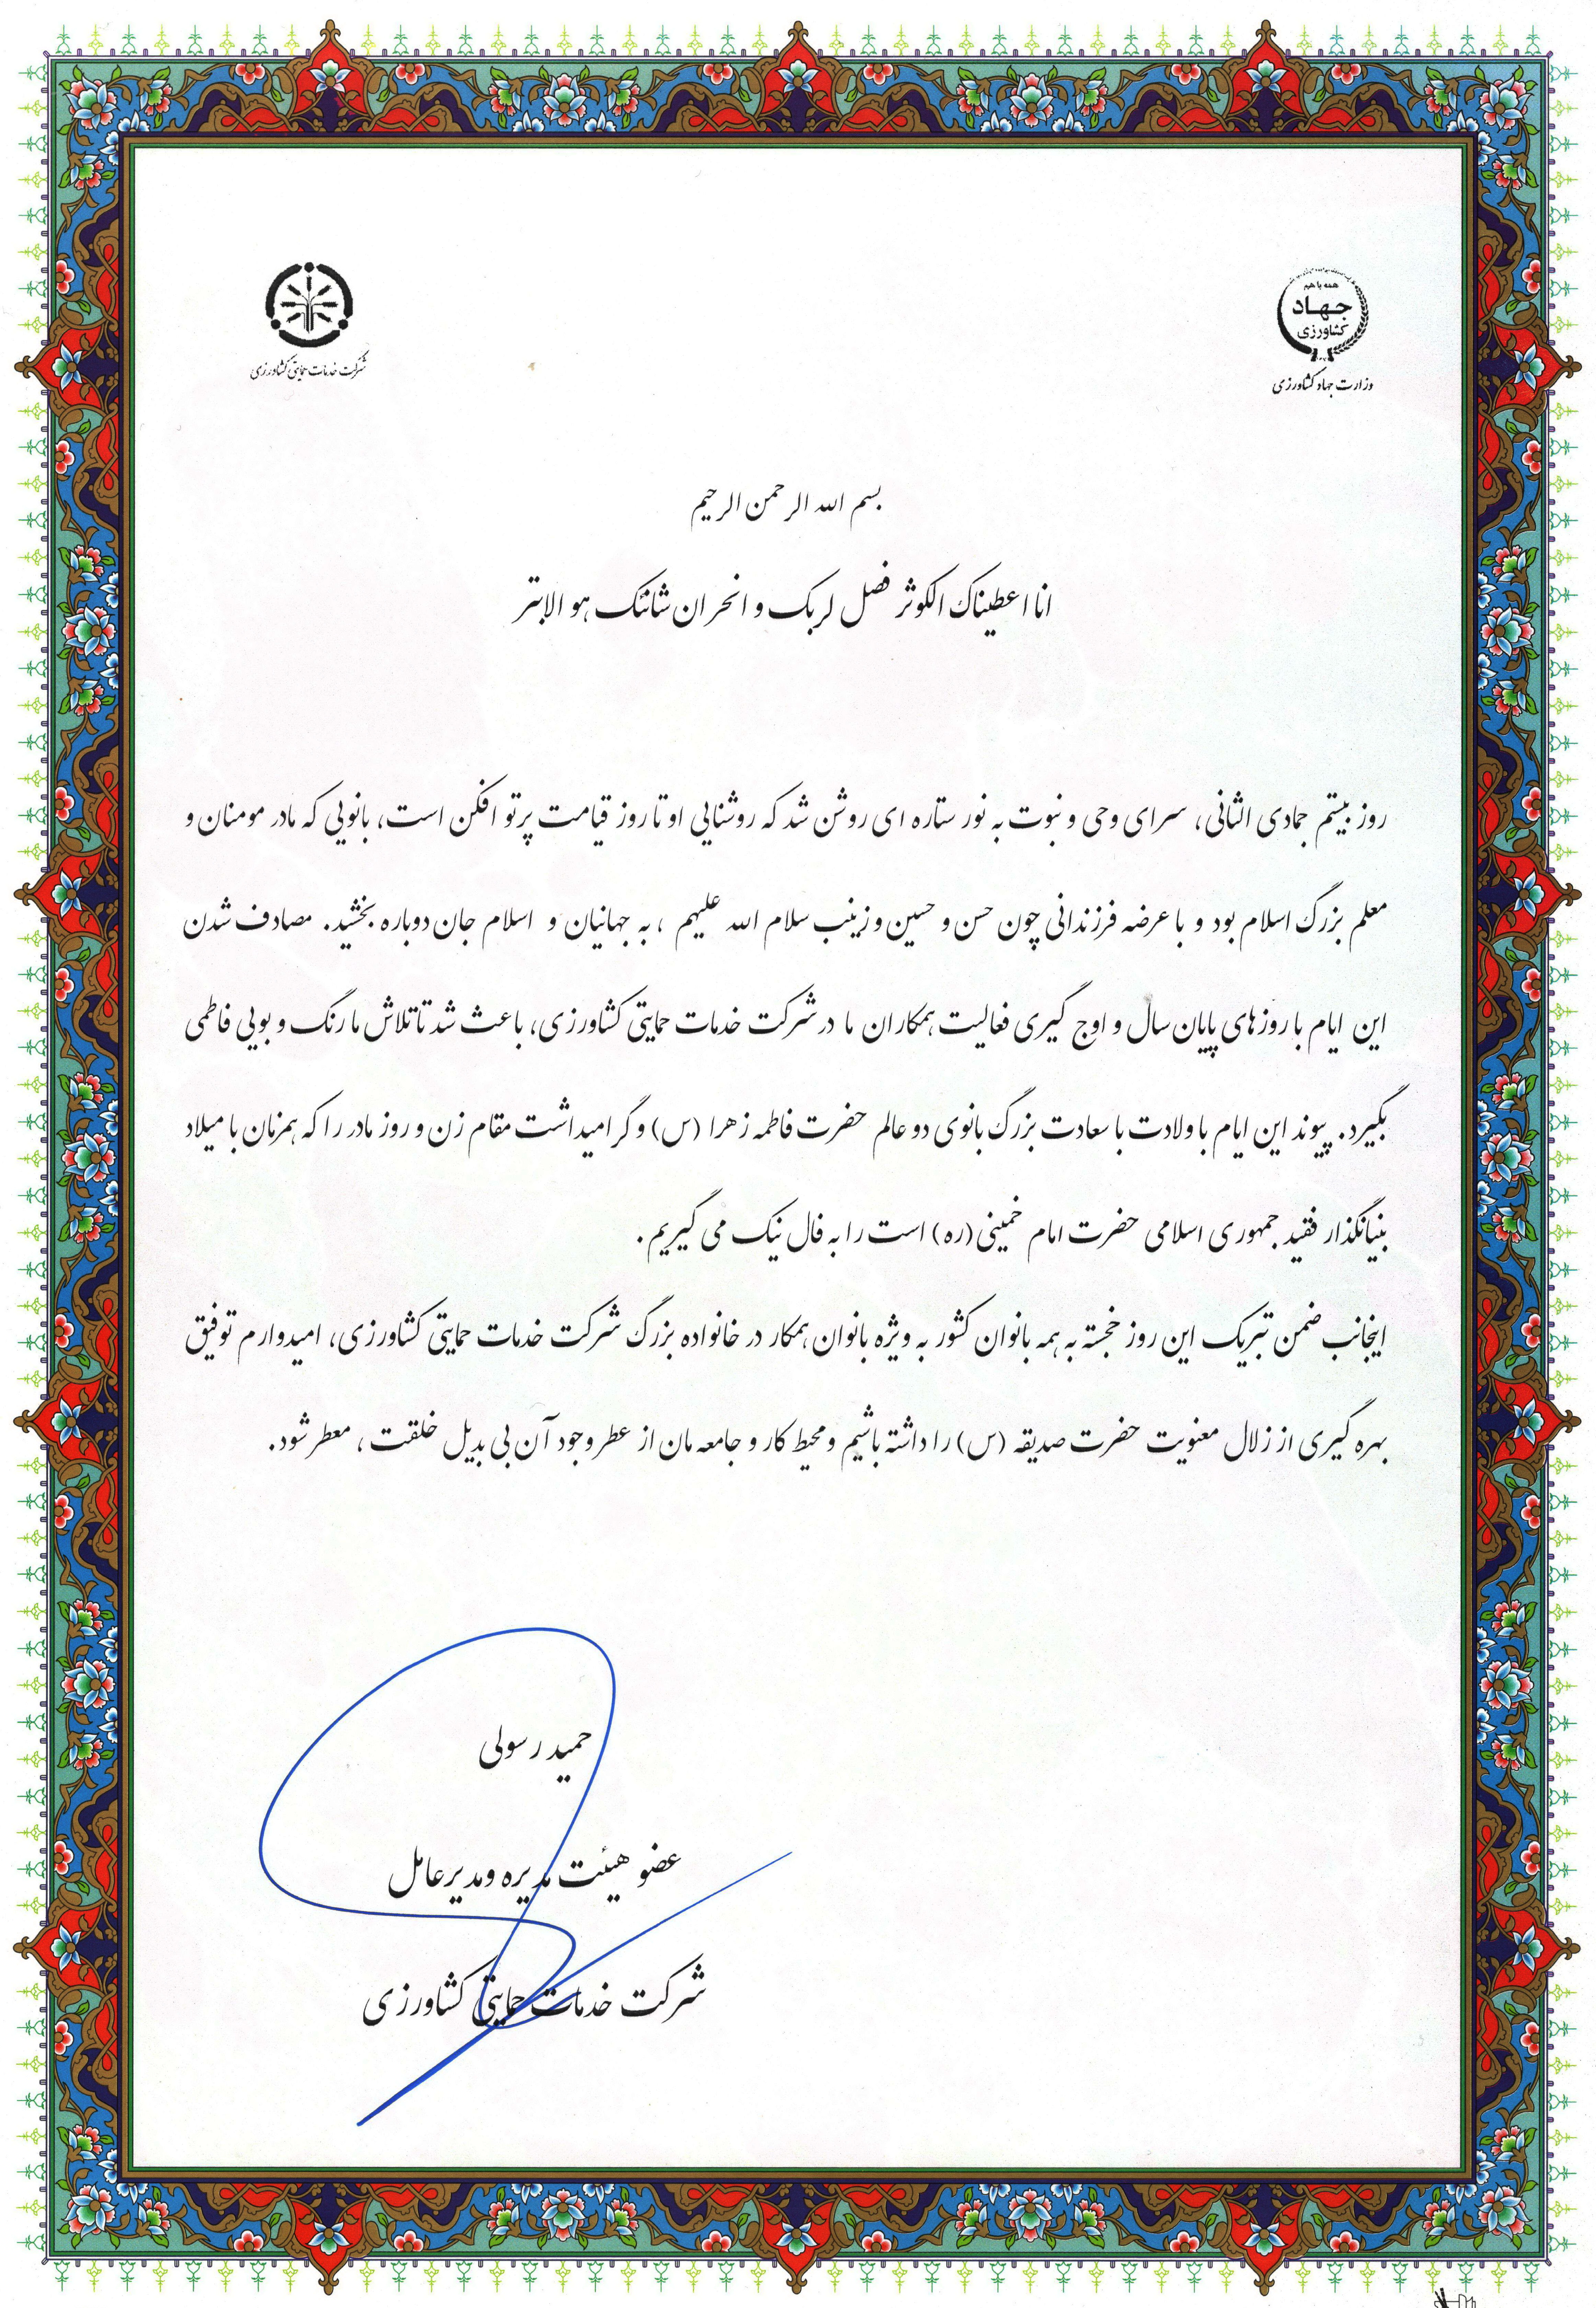 همه با هم
جهاد
کشاورزی
وزارت جهاد کشاورزی
شرکت خدمات حمایتی کشاورزی
بسم الله الرحمن الرحیم
انا اعطیناک الکوثر فصل لربک و انحر ان شانئک هو الابتر
روز بیستم جمادی الثانی، سرای وحی و نبوت به نور ستاره ای روشن شد که روشنایی او تا روز قیامت پرتو افکن است، بانویی که مادر مومنان و
معلم بزرگ اسلام بود و با عرضه فرزندانی چون حسن و حسین و زینب سلام الله علیهم ، به جهانیان و اسلام جان دوباره بخشید. مصادف شدن
این ایام با روزهای پایان سال و اوج گیری فعالیت همکاران ما در شرکت خدمات حمایتی کشاورزی، باعث شد تا تلاش ما رنگ و بویی فاطمی
بگیرد. پیوند این ایام با ولادت با سعادت بزرگ بانوی دو عالم حضرت فاطمه زهرا (س) و گرامیداشت مقام زن و روز مادر را که همزمان با میلاد
بنیانگذار فقید جمهوری اسلامی حضرت امام خمینی (ره) است را به فال نیک می گیریم.
اینجانب ضمن تبریک این روز خجسته به همه بانوان کشور به ویژه بانوان همکار در خانواده بزرگ شرکت خدمات حمایتی کشاورزی، امیدوارم توفیق
بهره گیری از زلال معنویت حضرت صدیقه (س) را داشته باشیم و محیط کار و جامعه مان از عطر وجود آن بی بدیل خلقت ، معطر شود.
حمید رسولی
عضو هیئت مدیره و مدیرعامل
شرکت خدمات حمایتی کشاورزی